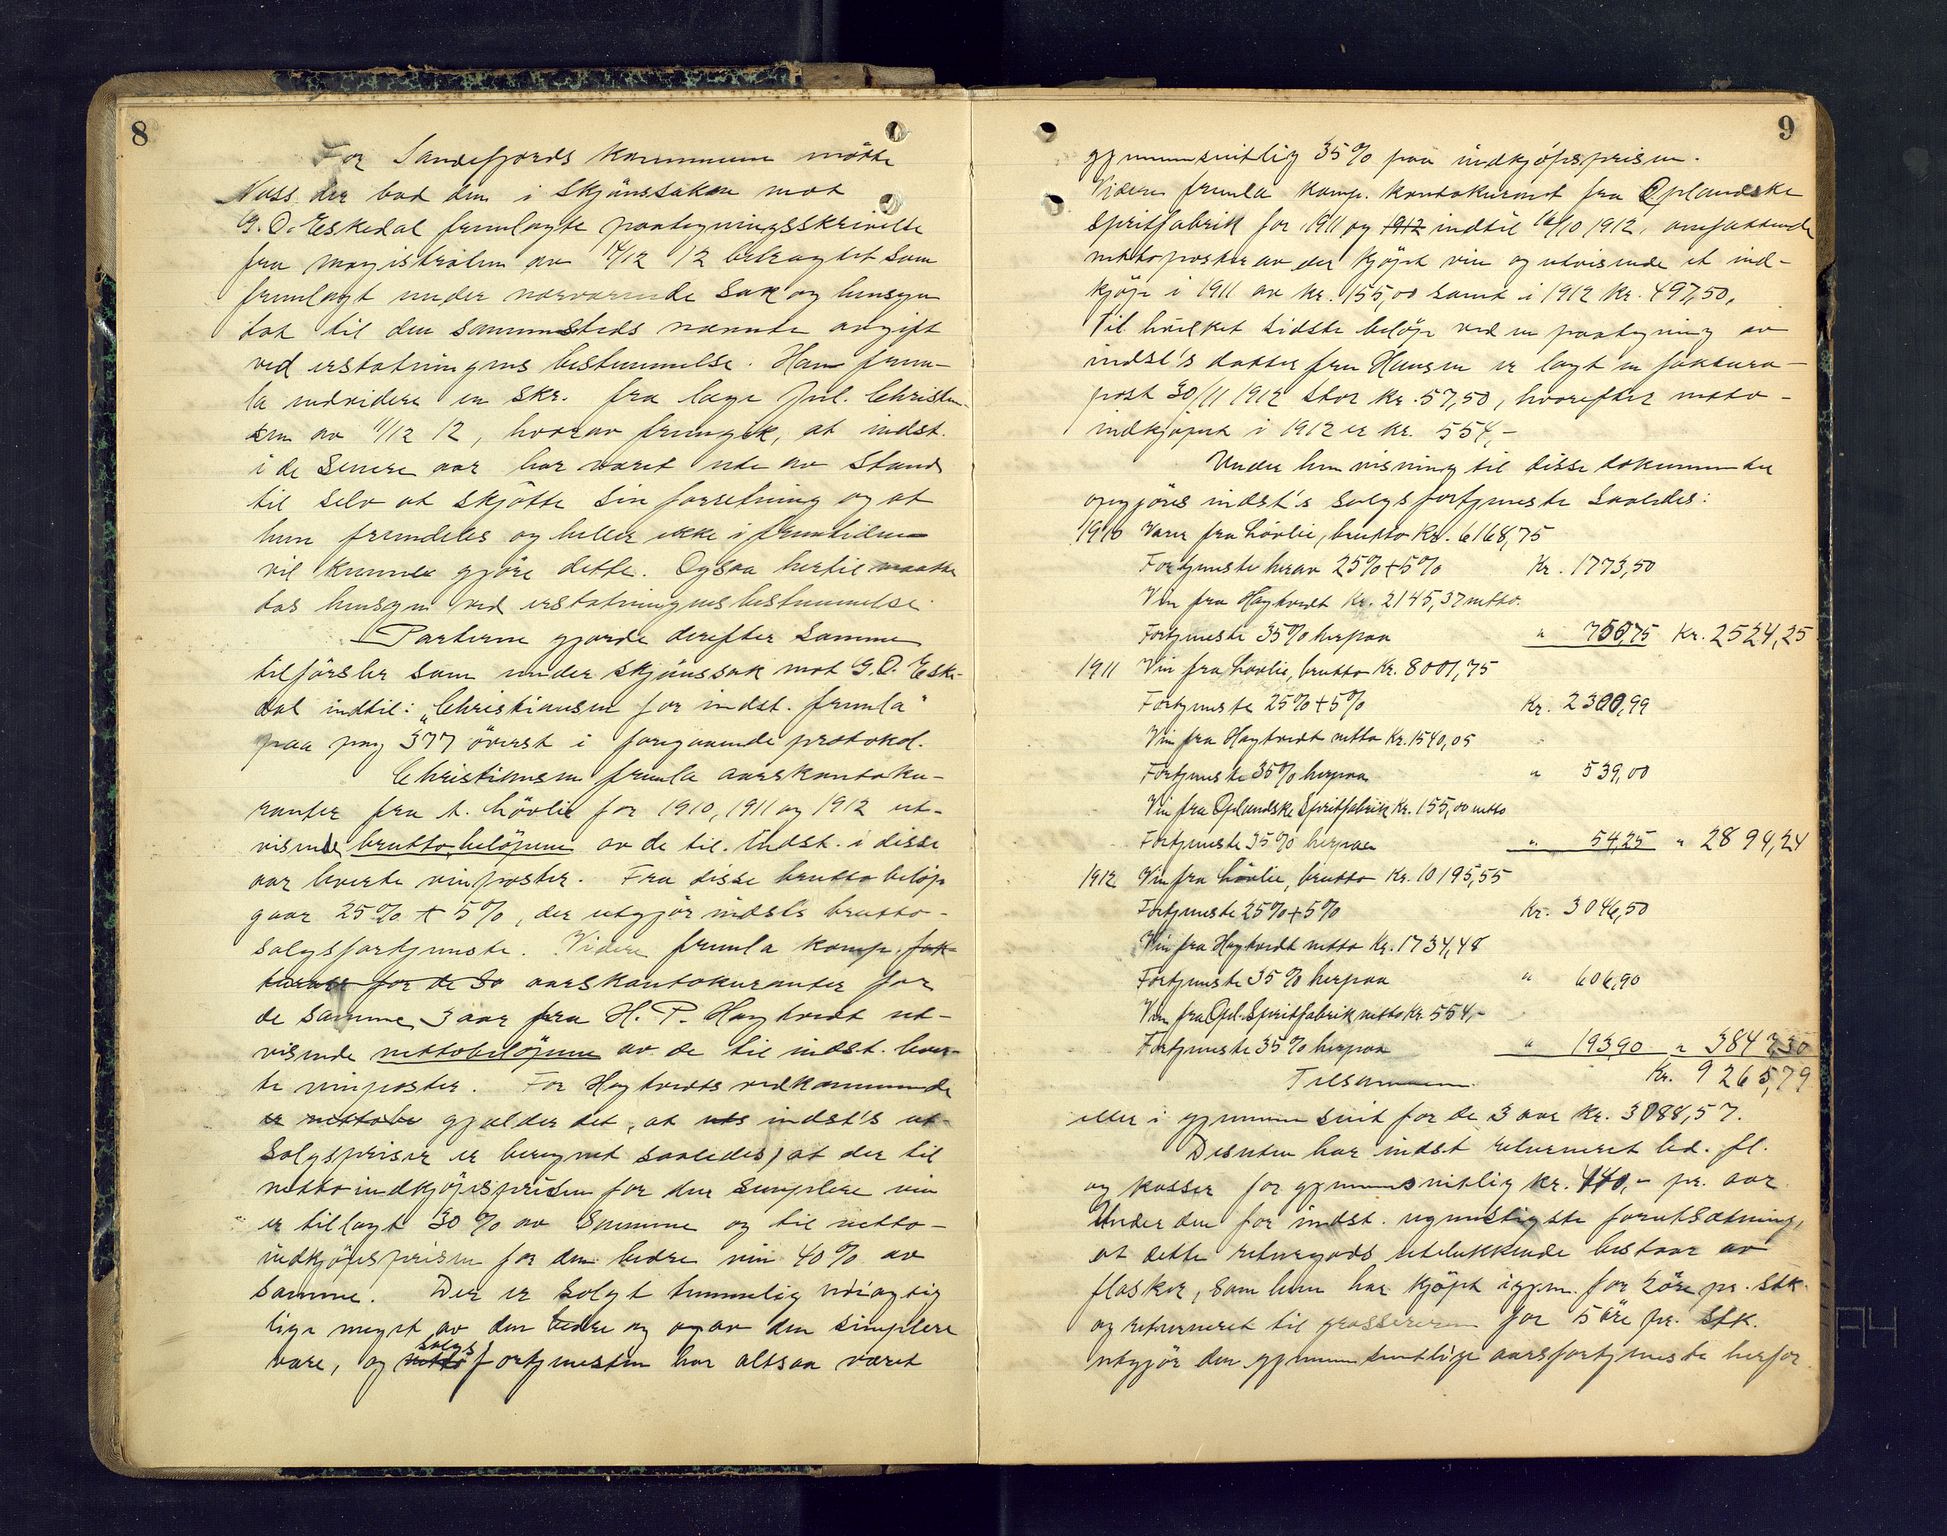 8
For Sandefjords kommune møtte
Nass der bad den i skjønssaken mot
G. O. Eskedal fremlagte paategningsskrivelse
fra magistraten av 14/12 12 betragtet som
fremlagt under nærværende sak og hensyn
tat til den sammesteds nævnte avgift
ved erstatningens bestemmelse. Han frem-
la endvidere en skr. fra læge Jul. Christen-
sen av 11/12 12, hvorav fremgik, at indst.
i de senere aar har været ute av stand
til selv at skjøtte sin forretning og at
hun fremdeles og heller ikke i fremtiden
vil kunne gjøre dette. Ogsaa hertil maatte
tas hensyn ved erstatningens bestemmelse.
Parterne gjorde derefter samme
tilførsler som under skjønssak mot G. O. Eske-
dal indtil: „Christiansen for indst. fremla"
paa pag 377 øverst i foregaaende protokol.
Christiansen fremla aarskontoku-
ranter fra A. Løvlie for 1910, 1911 og 1912 ut-
visende bruttobeløpene av de til indst. i disse
aar leverte vinposter. Fra disse bruttobeløp
gaar 25% + 5%, der utgjør indst's brutto-
salgsfortjeneste. Videre fremla komp. fak-
turaer for de 30 aarskontokuranter for
de samme 3 aar fra H. P. Høytvedt ut-
visende nettobeløpene av de til indst. lever-
te vinposter. For Høytvedts vedkommende
er nettobe gjælder det, at uts indst's ut-
salgspriser er beregnet saaledes, at der til
netto indkjøpsprisen for den simplere vin
er tillagt 30% av samme og til netto-
indkjøpsprisen for den bedre vin 40% av
samme. Der er solgt temmelig nøiagtig
like meget av den bedre og av den simplere
vare, og netto salgsfortjenesten har altsaa været
9
gjennemsnitlig 35% paa indkjøpsprisen.
Videre fremla komp. kontokurant fra Oplandske
Spritfabrik for 1911 og 1912 indtil 16/10 1912, omfattende
nettoposter av der kjøpt vin og utvisende et ind-
kjøp i 1911 av kr. 155,00 samt i 1912 kr. 497,50,
til hvilket sidste beløp ved en paategning av
indst's datter fru Hansen er lagt en faktura-
post 30/11 1912 stor kr. 57,50, hvorefter netto-
indkjøpet i 1912 er kr. 554,-
Under henvisning til disse dokumenter
opgjøres indst's salgsfortjeneste saaledes:
1910 Varer fra Løvlie, brutto kr. 6168,75
Fortjeneste herav 25% + 5% Kr. 1773,50
Vin fra Høytvedt kr. 2145,37 netto.
Fortjeneste 35% herpaa " 750,75 Kr. 2524,25
1911 Vin fra Løvlie, brutto kr. 8001,75
Fortjeneste 25% + 5% Kr. 2300,99
Vin fra Høytvedt netto kr. 1540,05
Fortjeneste 35% herpaa " 539,00
Vin fra Oplandske Spritfabrik kr. 155,00 netto
Fortjeneste 35% herpaa " 54,25 " 2894,24
1912 Vin fra Løvlie, brutto kr. 10195,55
Fortjeneste 25% + 5% Kr. 3046,50
Vin fra Høytvedt netto kr. 1734,48
Fortjeneste 35% herpaa " 606,90
Vin fra Opl. Spritfabrik netto kr. 554,-
Fortjeneste 35% herpaa " 193,90 " 3847,30
Tilsammen Kr. 9265,79
eller i gjennemsnit for de 3 aar kr. 3088,57.
Desuten har indst returneret led. fl.
og kasser for gjennemsnitlig kr. 440,- pr. aar
Under den for indst. ugunstigste forutsætning,
at dette returgods utelukkende bestaar av
flasker, som hun har kjøpt igjen for 2 øre pr. stk.
og returneret til grossereren for 5 øre pr. stk.
utgjør den gjennemsnitlige aarsfortjeneste herfor